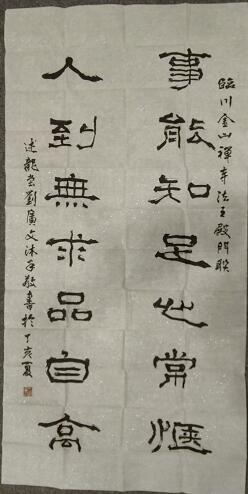 臨川金山禪寺法王殿門聯
事能知足心常愜
人到無求品自高
述龍堂劉廣文沐手敬書於丁亥夏